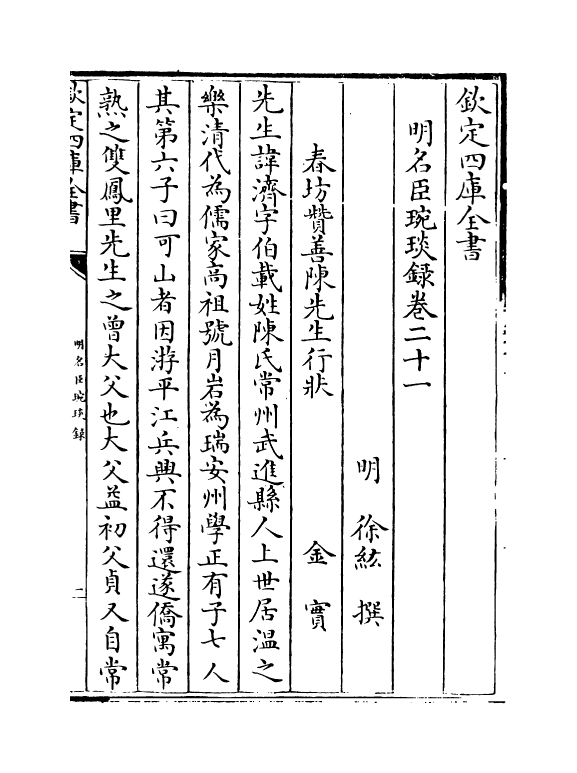 欽定四庫全書
明名臣琬琰錄卷二十一
明 徐紘 撰
春坊贊善陳先生行狀 金實
先生諱濟字伯載姓陳氏常州武進縣人上世居溫之
樂清代為儒家高祖號月岩為瑞安州學正有子七人
其第六子曰可山者因游平江兵興不得還遂僑寓常
熟之雙鳳里先生之曾大父也大父益初父貞又自常
欽定四庫全書
明名臣琬琰錄